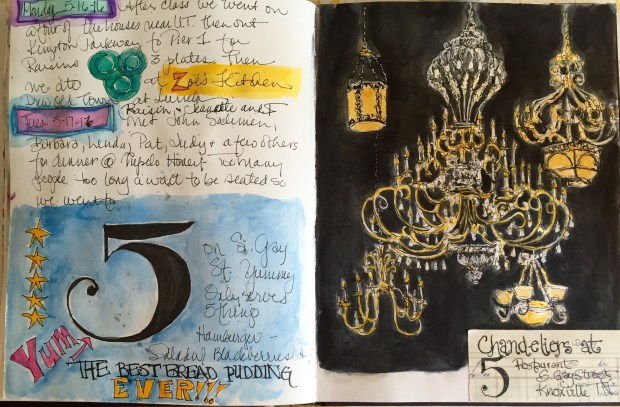 Monday 5-16-16 After class we went on
a tour of the houses near UT then out
Kington Parkway to Pier 1 for
Raisins 3 plates. Then
we ate at Zoë's Kitchen
at
Tues 5-17-16 Raison, Claudette and I
met John
Barbara, Linda, Pat, Judy + a few others
for dinner @ Tupelo Honey - so many
people too long a wait to be seated so
we went to
5
on S. Gay
St. Yummy
only serves
5 things
Hamburger -
Salad w/ Blackberries +
Yum
THE BEST BREAD PUDDING
EVER!!!
Chandeliers at
5 Restaurant
S. Gay Street
Knoxville TN